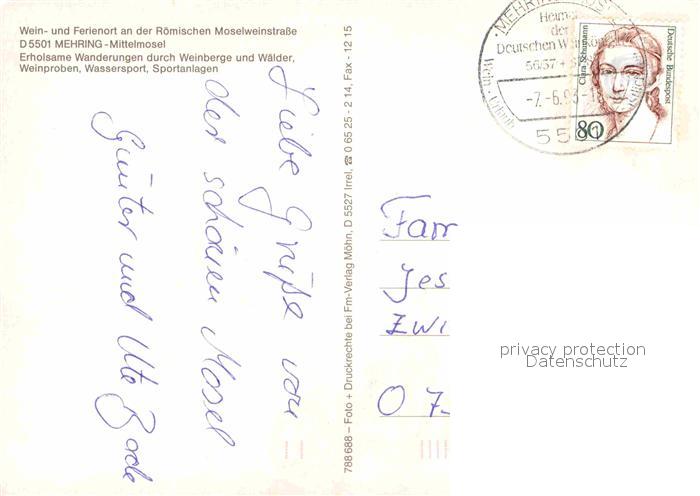 Wein- und Ferienort an der Römischen Moselweinstraße
D 5501 MEHRING - Mittelmosel
Erholsame Wanderungen durch Weinberge und Wälder,
Weinproben, Wassersport, Sportanlagen
Liebe Grüße von
der schönen Mosel
Günter und Ute
788 688 – Foto + Druckrechte bei Fm-Verlag Möhn, D 5527 Irrel, ☎ 0 65 25 - 2 14, Fax - 12 15
Heimat
der
Deutschen Weinkönigin
56/57 +
-7.-6.93-18
Wein · Urlaub
Clara Schumann
Deutsche Bundespost
80
Fam
Jes
Zwi
O 7-
privacy protection
Datenschutz